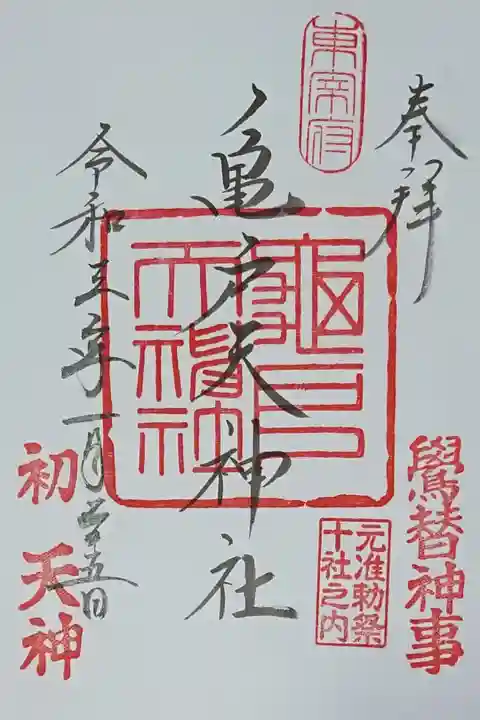 奉拝
鷽替神事
東宰府
元准勅祭
十社之内
亀戸天神社
令和三年一月廿五日
初天神